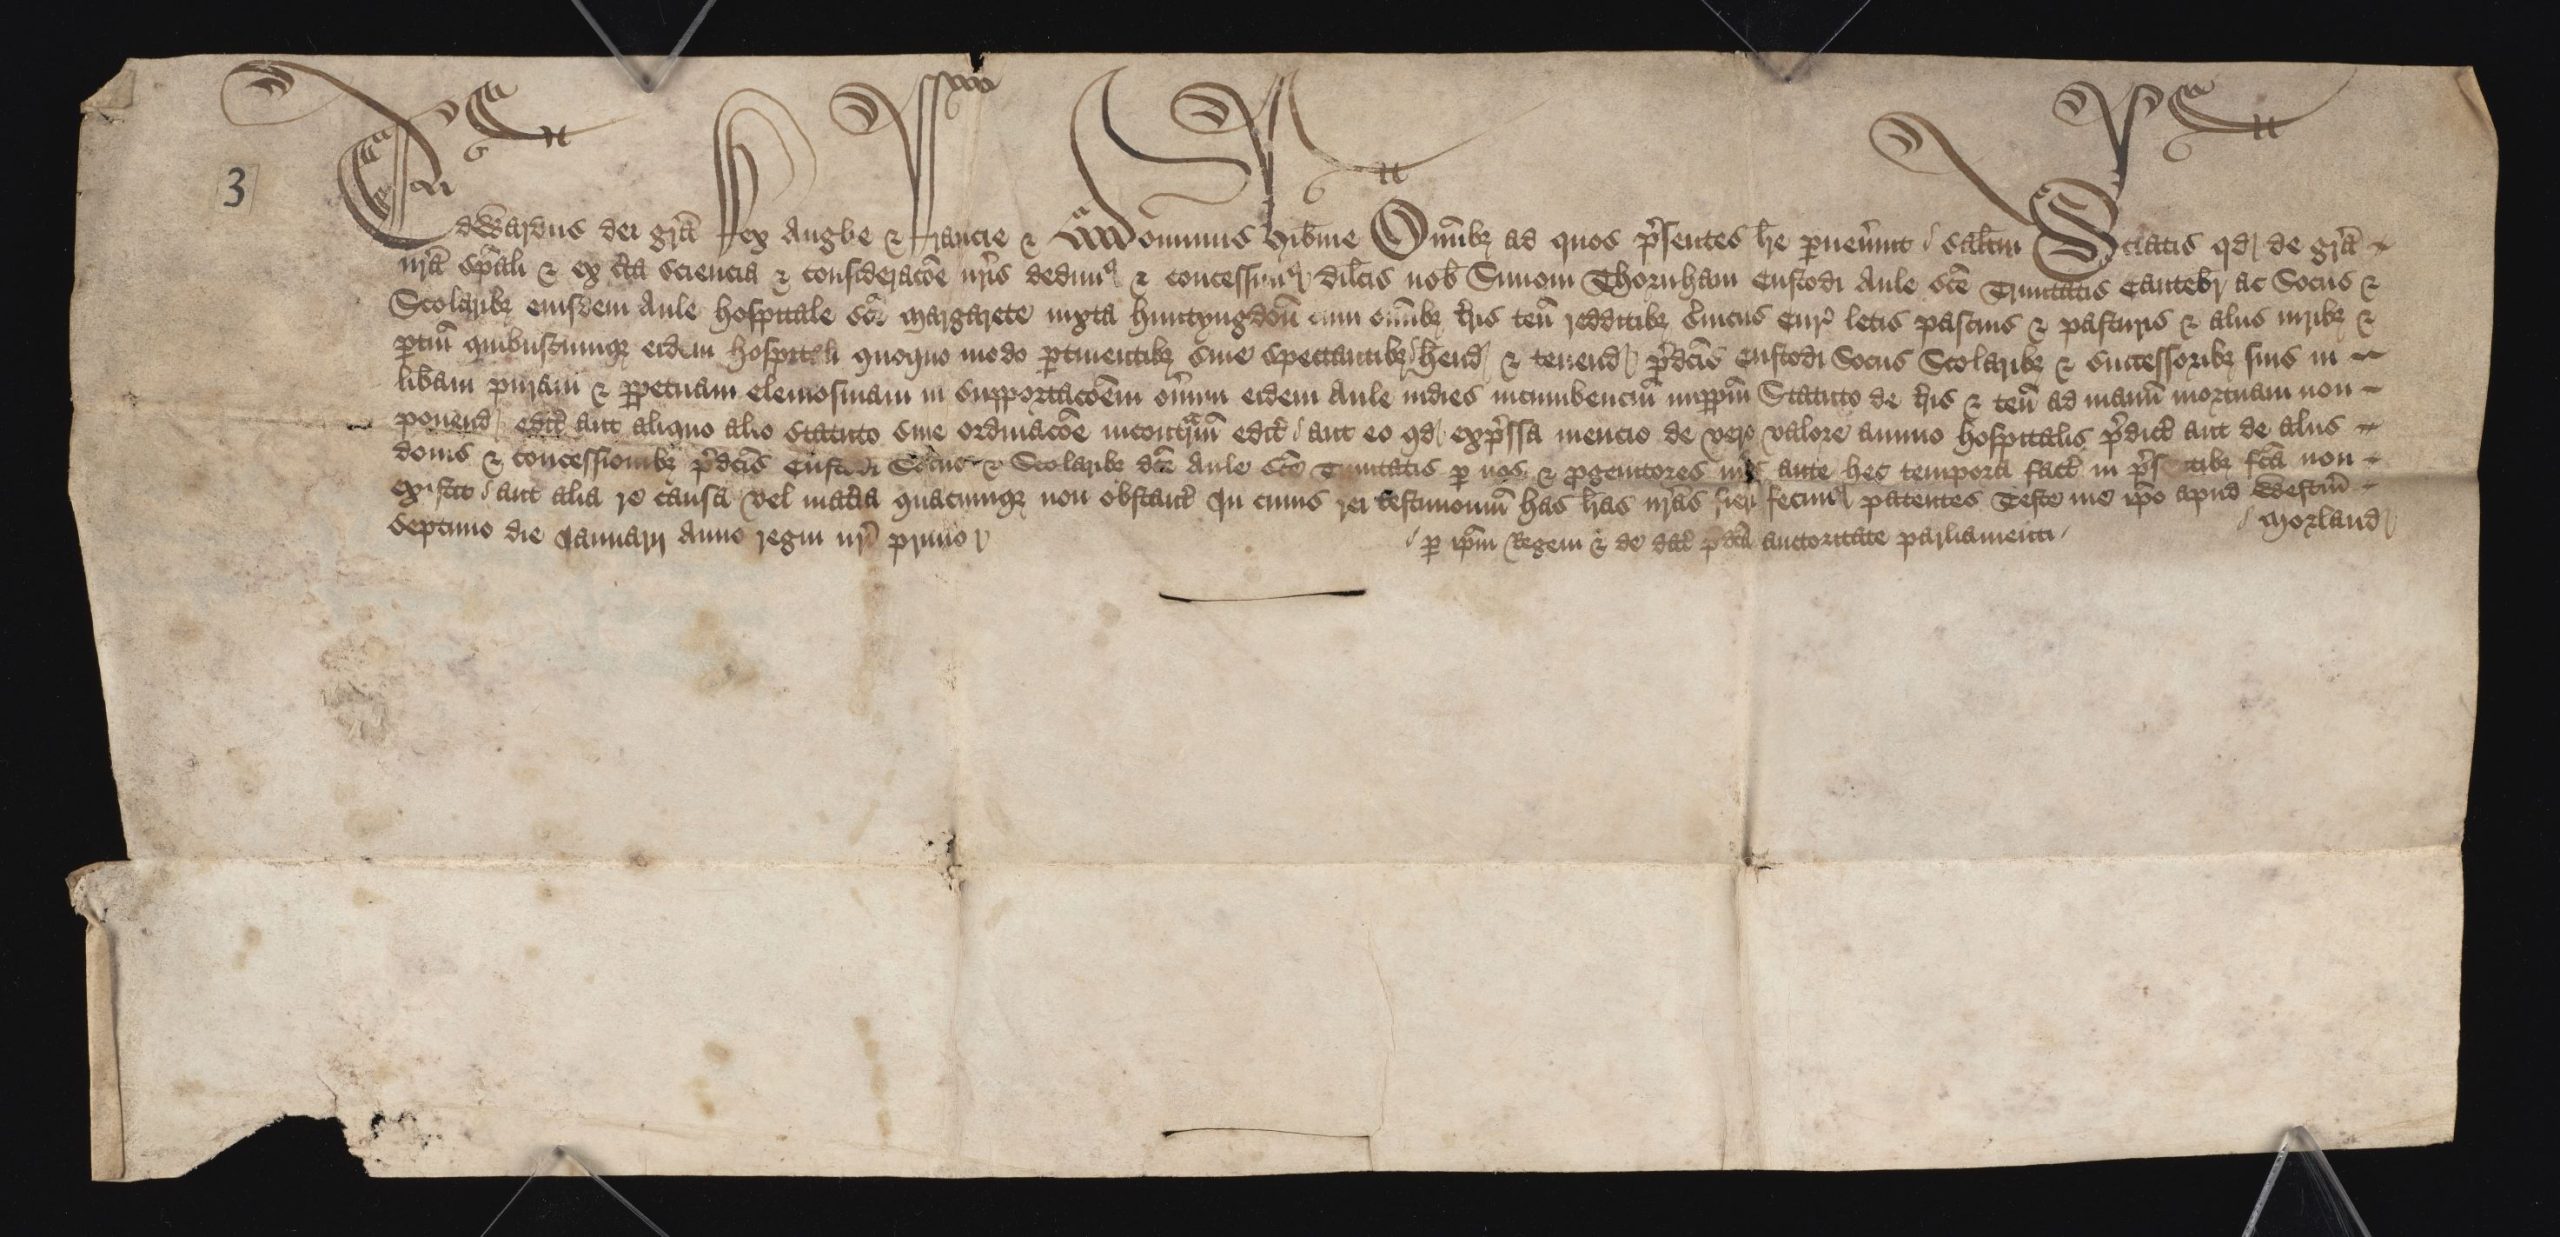 3
Edwardus dei gr̄a Rex Anglie & Francie & Dominus Hib̄nie Om̄ibȝ ad quos p̄sentes l̄re p̄uen̄int sal̄tm Sciatis qd de gr̄a
nr̄a sp̄ali & ex c̄ta sciencia & consideraco̅e nr̄is dedim⁹ & concessim⁹ dil̄cis nob̄ Simoni Thornham Custodi Aule sc̄e Trinitatis Cantebr̄ ac Sociis &
Scolaribȝ eiusdem Aule hospitale sc̄e Margarete iuxta Huntyngdon̄ cum om̄ibȝ t̄ris ten̄ redditibȝ s̄uiciis Cur̄ letis pascuis & pasturis & aliis iuribȝ &
p̱tin̄ quibuscumqȝ eidem hospitali quoquo modo p̱tinentibȝ siue spectantibȝ h̄end & tenend p̄dc̄is Custodi Sociis Scolaribȝ & successoribȝ suis in
lib̄am puram & p̱petuam elemosinam in supportaco̅em on̄um eidem Aule indies incumbenciu̅ imp̱pm̄ Statuto de t̄ris & ten̄ ad manu̅ mortuam non
ponend edit̄ aut aliquo alio statuto siue ordinaco̅e incontr̄iu̅ edit̄ aut eo qd exp̄ssa mencio de vero valore annuo hospitalis p̄dict̄ aut de aliis
donis & concessionibȝ p̄dc̄is Custodi Sociis & Scolaribȝ dc̄e Aule sc̄e Trinitatis p̱ nos & p̱genitores nr̄os ante hec tempora fact̄ in p̄sentibȝ fc̄a non
existit aut alia re causa vel mat̄ia quacumqȝ non obstant̄ In cuius rei testimoniu̅ has l̄ras nr̄as fieri fecim⁹ patentes Teste me ip̄o apud Westm̄
Septimo die Januarij Anno regni nr̄i primo
p̱ ip̄m Regem & de dat̄ p̄dc̄a auctoritate parliamenti
Morland